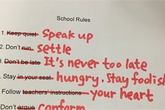 School Rules
1. Keep quiet. Speak up
2. Don't run. settle
3. Don't be late It's never too late
4. Stay in your seat. hungry. Stay foolish
5. Follow teachers' instructions. your heart
Don't argue conform